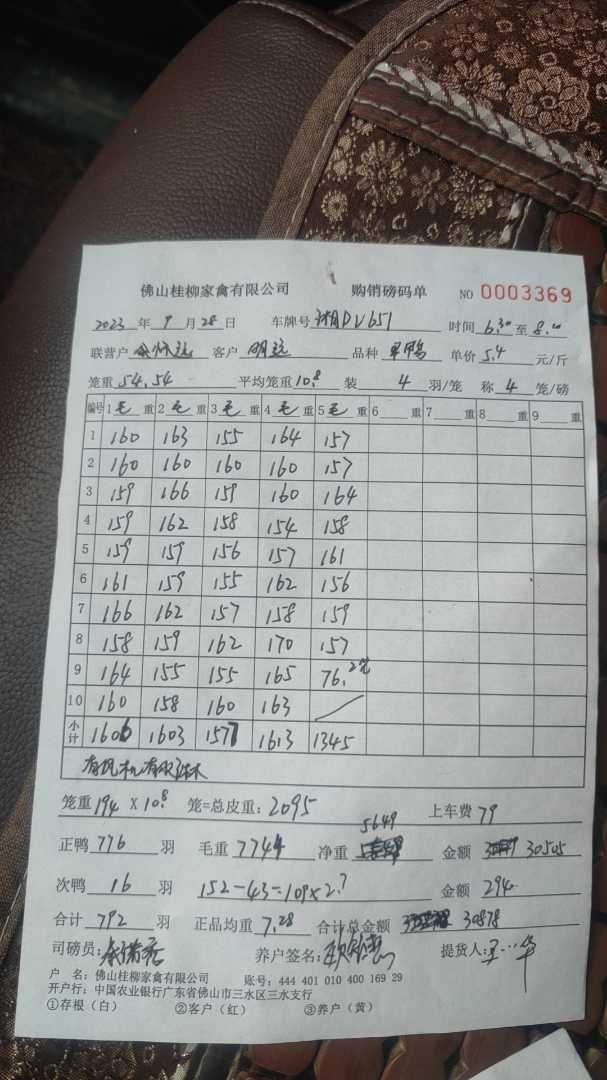 佛山桂柳家禽有限公司 购销磅码单 NO 0003369
2023 年 9 月 28 日 车牌号 湘DV651 时间 6.30 至 8.00
联营户 客户 明远 品种 单价 5.4 元/斤
笼重 54.54 平均笼重 10.8 装 4 羽/笼 称 4 笼/磅
编号 1 毛 重 2 毛 重 3 毛 重 4 毛 重 5 毛 重 6 重 7 重 8 重 9 重
1 160 163 155 164 157
2 160 160 160 160 157
3 159 166 159 160 164
4 159 162 158 154 158
5 159 159 156 157 161
6 161 159 155 162 156
7 166 162 157 158 159
8 158 159 162 170 157
9 164 155 155 165 76. 2笼
10 160 158 160 163
小计 1606 1603 1577 1613 1345
笼重 194 X 10.8 笼=总皮重: 2095 上车费 79
正鸭 776 羽 毛重 7744 净重 5649 金额 30505
次鸭 16 羽 152-43=109×2.7 金额 294
合计 792 羽 正品均重 7.28 合计总金额 30878
司磅员: 养户签名: 提货人:
户 名: 佛山桂柳家禽有限公司 账号: 444 401 010 400 169 29
开户行: 中国农业银行广东省佛山市三水区三水支行
①存根（白） ②客户（红） ③养户（黄）